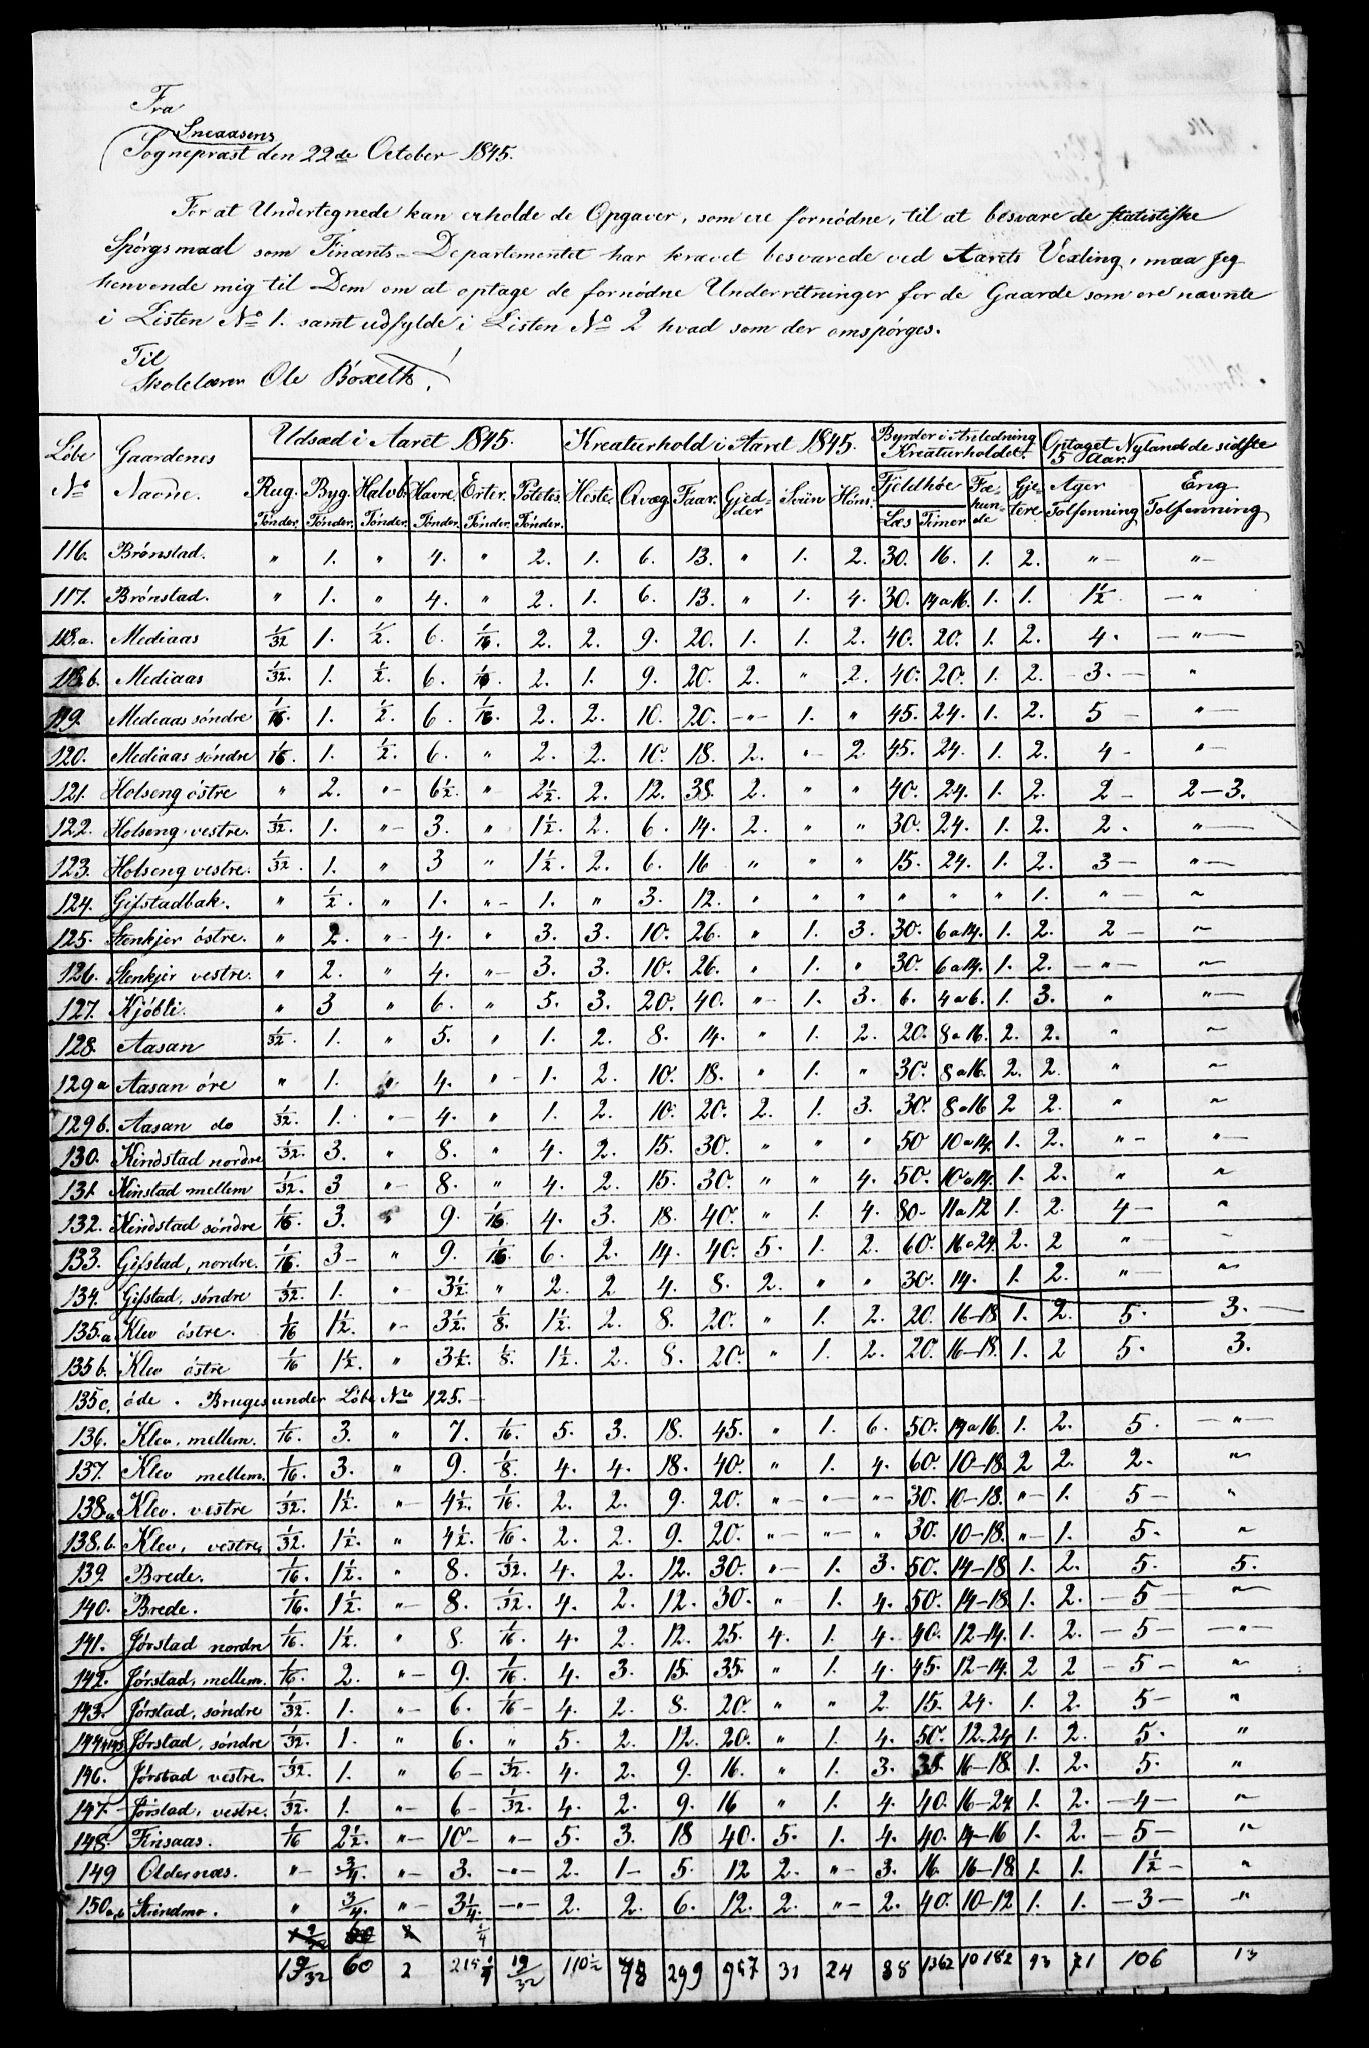 Fra
Sneaasens
Sognepræst den 22de October 1845.
For at Undertegnede kan erholde de Opgaver, som ere fornødne, til at besvare de statistiske
Spørgsmaal som Finants-Departementet har krævet besvarede ved Aarets Vexling, maa jeg
henvende mig til Dem om at optage de fornødne Underretninger for de Gaarde som ere nævnte
i Listen No 1. samt udfylde i Listen No 2 hvad som der omspørges.
Til
Skolelærer Ole
Løbe No | Gaardenes Navne. | Udsæd i Aaret 1845. | Kreaturhold i Aaret 1845. | Byrder i Anledning Kreaturholdet. | Optaget Nyland de sidste 5 Aar.
Rug. Tønder. | Byg. Tønder. | Halvb. Tønder. | Havre. Tønder. | Erter. Tønder. | Potetes. Tønder. | Heste. | Qvæg. | Faar. | Gjedder | Sviin | Høns. | Fjeldhøe Læs | Timer | Fæhunde | Gjetere | Ager Tolfønning | Eng Tolfønning
116. Brønstad. " 1. " 4. " 2. 1. 6. 13. " 1. 2. 30. 16. 1. 2. " "
117. Brønstad. " 1. " 4. " 2. 1. 6. 13. " 1. 4. 30. 14 a 16. 1. 1. 1½ "
118.a. Mediaas 1/32 1. ½. 6. 1/16. 2. 2. 9. 20. 1. 1. 2. 40. 20. 1. 2. 4. "
118 b. Mediaas 1/32. 1. ½. 6. 1/16. 2. 1. 9. 20. 2. " 2. 40. 20. 1. 2. 3. "
119. Mediaas søndre 1/16. 1. ½. 6. 1/16. 2. 2. 10. 20. " 1. " 45. 24. 1. 2. 5 "
120. Mediaas søndre 1/16. 1. ½. 6. " 2. 2. 10. 18. 2. " 2. 45. 24. 1. 2. 4 "
121. Holseng østre " 2. " 6½. " 2½. 2. 12. 38. 2. " " 40. 24. 1. 2. 2 2-3.
122. Holseng vestre. 1/32. 1. " 3. " 1½. 2. 6. 14. 2. " " 30. 24. 1. 2. 2. "
123. Holseng vestre. 1/32. 1. " 3 " 1½. 2. 6. 16 " " " 15. 24. 1. 2. 3 "
124. Gifstadbak. " ½. " 1. " 1. " 3. 12. " " " " " " 1. " "
125. Stenkjer østre. " 2. " 4. " 3. 3. 10. 26. " 1. 3. 30. 6 a 14. 1. 2. 2 "
126. Stenkjer vestre. " 2. " 4. " 3. 3. 10. 26. " 1. " 30. 6 a 14. 1. 2. " "
127. Kjøbli. " 3 " 6. " 5. 3. 20. 40. " 1. 3. 6. 4 a 6. 1. 3. " "
128. Aasan 1/32. 1. " 5. " 1. 2. 8. 14. " 1. 2. 20. 8 a 16. 2. 2. " "
129 a Aasan øre " 1. " 4. " 1. 2. 10. 18. " 1. " 30. 8 a 16. 2. 2. " "
129 b. Aasan do 1/32. 1. " 4. " 1. 2. 10. 20. 2. 1. 3. 30. 8 a 16 2 2. " "
130. Kindstad nordre 1/32. 3. " 8. " 4. 2. 15. 30. " " " 50 10 a 14. 1. 2. " "
131. Kinstad mellem 1/32. 3 " 8. " 4. 2. 15. 30. " " 4. 50. 10 a 14. 1. 2. " "
132. Kindstad søndre 1/16. 3. " 9. 1/16. 4. 3. 18. 40. " 1. 4. 80 11 a 12 1. 2. 4 "
133. Gifstad, nordre. 1/16. 3 " 9. 1/16. 6. 2. 14. 40. 5. 1. 2. 60. 16 a 24. 2. 2 " "
134. Gifstad, søndre 1/32. 1. " 3½. " 2. 2 4. 8. 2. " " 30. 14. 1. 2. " "
135.a Klev østre. 1/16 1½. " 3½. 1/8. 1½. 2. 8. 20. " 1. 2. 20. 16-18. 1. 2. 5. 3.
135 b. Klev østre 1/16 1½. " 3½. 1/8. 1½. 2. 8. 20. " 1. 2. 20. 16-18. 1. 2 5. 3.
135 c. øde. Bruges under Løbe No 125.
136. Klev, mellem. 1/16. 3. " 7. 1/16. 5. 3. 18. 45. " 1. 6. 50. 14 a 16. 1. 2. 5. "
137. Klev mellem. 1/16. 3. " 9. 1/8 4. 4. 18. 40. " 1. 4. 60. 10-18. 2 2. 2. "
138.a Klev. vestre 1/32. 1½. " 4½. 1/16. 2. 2. 9. 20. " " " 30. 10-18. " 1. 5 "
138.b. Klev, vestre 1/32. 1½. " 4½. 1/16. 2. 2. 9. 20. " " " 30. 10-18. " 1. 5. "
139. Brede. 1/16. 1½. " 8. 1/32. 4. 2. 12. 30. " 1. 3. 50. 14-18 1. 2. 5. 5.
140. Brede. 1/16. 1½. " 8. 1/32. 4. 2. 12. 30. " 1. 4. 50. 14-18. 1. 2. 5 "
141. Jørstad nordre 1/16. 1½. " 8. 1/16. 4. 2. 12. 25. 4. 1. 4. 40. 12-14. 1. 2. 5 "
142. Jørstad, mellem. 1/16. 2. " 9. 1/16. 4. 3. 15. 35. " 1. 4. 45. 12-14. 2 2 5 "
143. Jørstad, søndre 1/32. 1. " 6. 1/16 4. 2 8. 20. " " 2. 15. 24. 1. 2. 5 "
144, 145 Jørstad, søndre 1/32. 1. " 6. " 5. 2. 12. 20. " 1. 4. 50. 12-24 1. 2. 5. "
146. Jørstad vestre. 1/32. 1. " 6 1/32. 4. 2. 9. 16. " 1. 3. 35. 16-18. 1. 2. 5. "
147. Jørstad, vestre. 1/32. 1. " 6 1/32. 4. 2. 9. 16 " 1. 4. 40. 16-24 1. 2. 4 "
148. Finsaas. 1/16 2½. " 10 " 5. 3. 18 40. 5. 1. 4. 40. 14-16 1. 2. 5 "
149 Oldernæs. " 3/4. " 3. " 2. 1 5. 12 2. " 3. 16. 16-18. 1. 1. 1½ "
150 a,b " 3/4. " 3¼. " 2. 2. 6. 12. 2. " 2. 40. 10-12 1. 1. 3 "
1 9/32 60 2 215 ¼ 19/32 110½ 78 299 957 31 24 88 1362 10 182 43 71 106 13